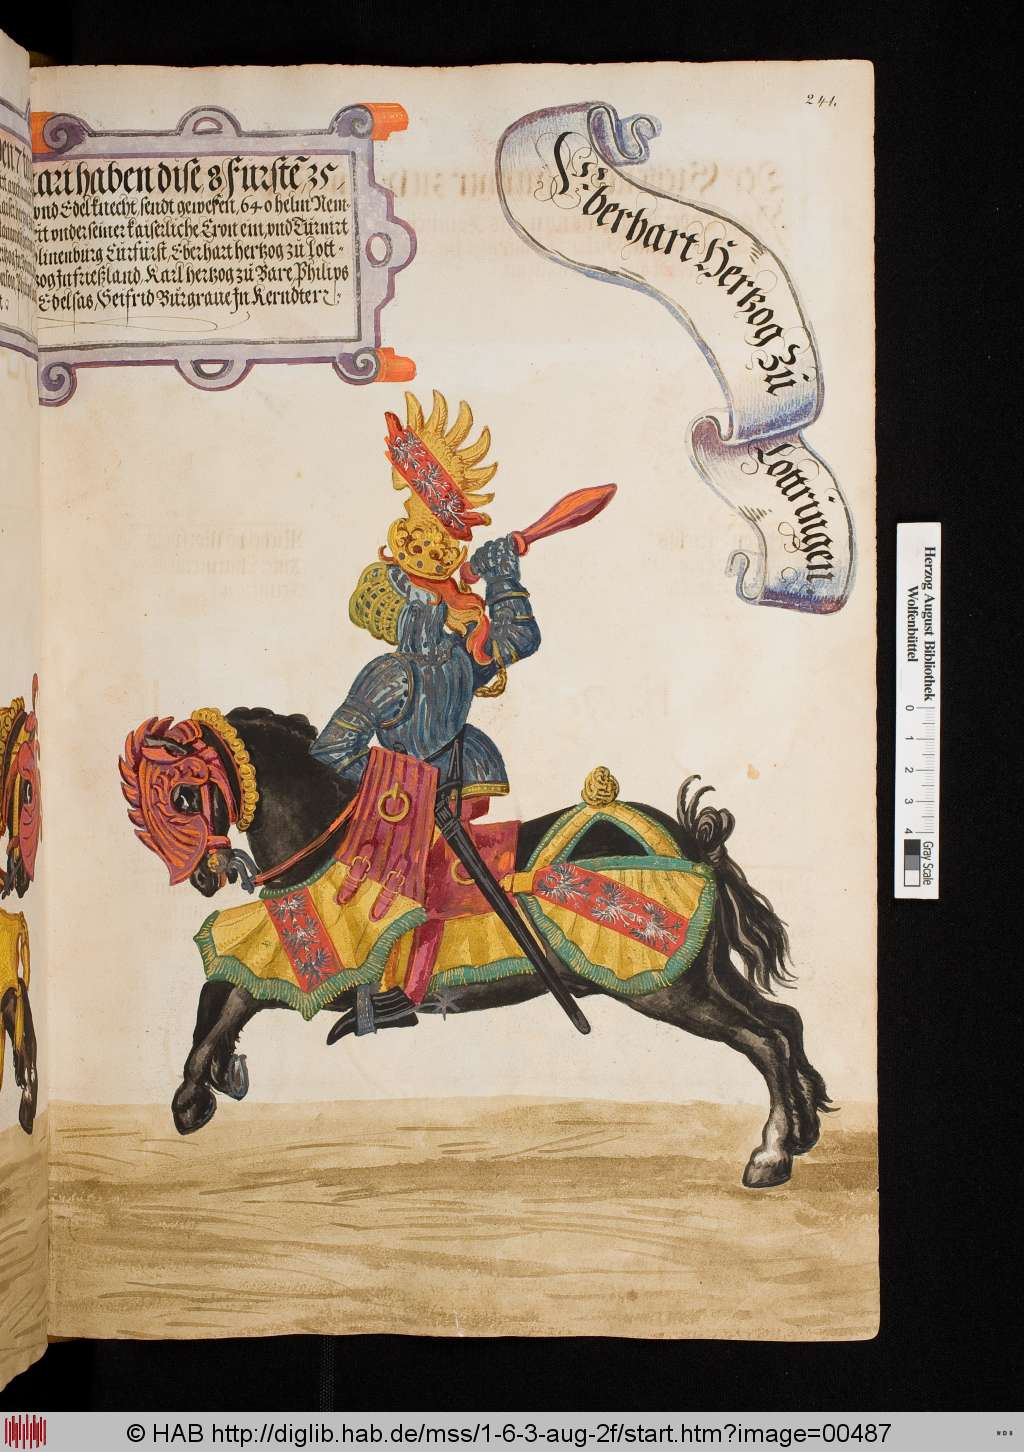 241.
karl haben dise 8 furstē 35.
vnd Edelknecht, sendt gewesen, 640 helm Nem-
rit vnder seiner kaiserliche Cron ein, vnd Turnirt
linenburg Curfürst, Eberhart hertzog zů Lott-
zog Jn frießland, Karl hertzog zů Bare Philips
Edelsas, Seifrid Burgraue Jn Kerndten
Eberhart Hertzog zů
Lottringen
Herzog August Bibliothek
Wolfenbüttel
0 1 2 3 4
Gray Scale
© HAB http://diglib.hab.de/mss/1-6-3-aug-2f/start.htm?image=00487